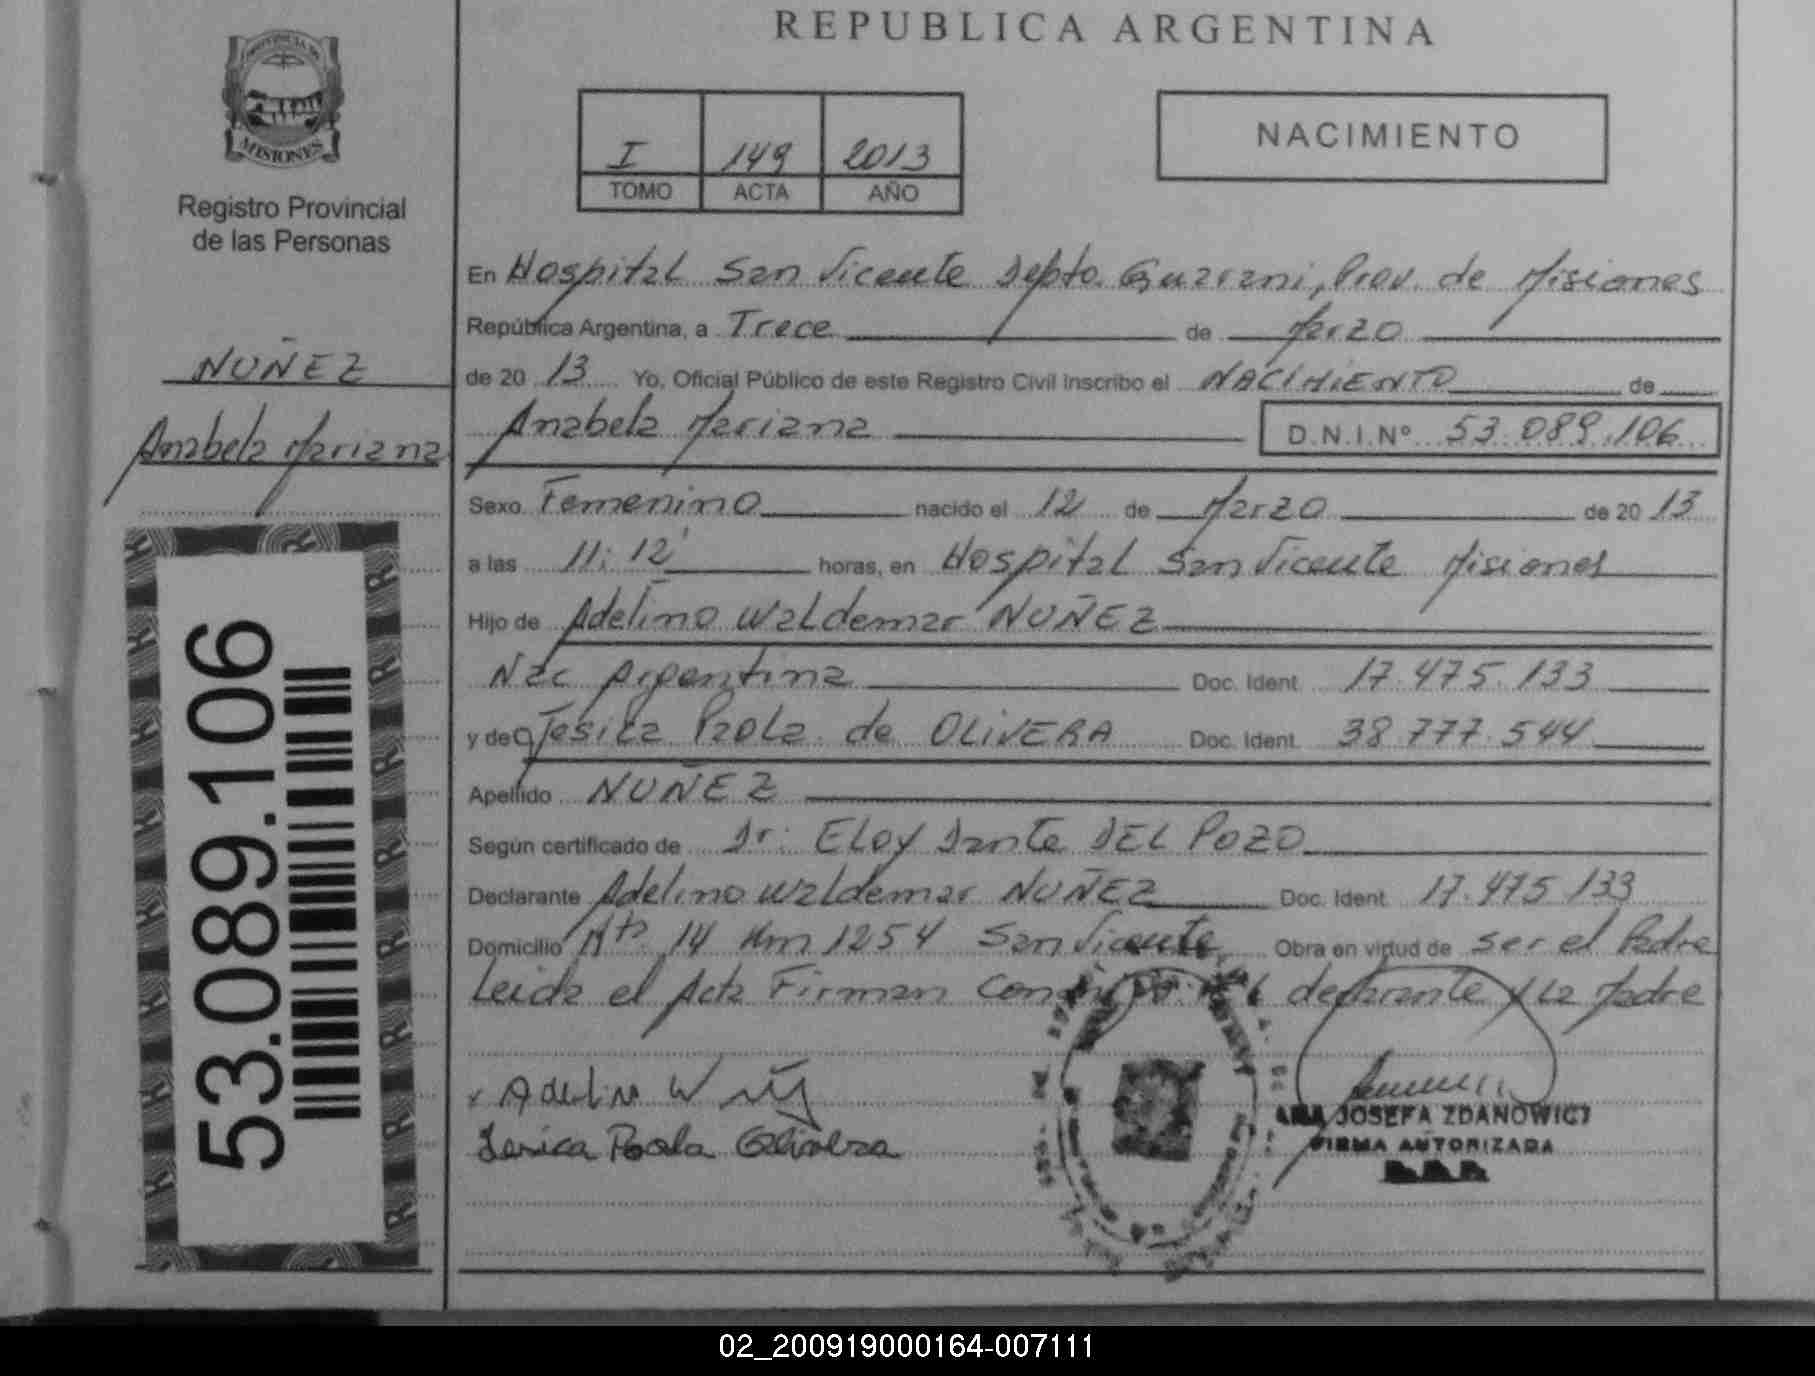 REPUBLICA ARGENTINA
PROVINCIA DE
MISIONES
Registro Provincial
de las Personas
I 149 2013
TOMO ACTA AÑO
NACIMIENTO
NUÑEZ
Anabela Mariana
53.089.106
En Hospital San Vicente Depto. Guarani, Prov. de Misiones
República Argentina, a Trece de Marzo
de 20 13 Yo, Oficial Público de este Registro Civil Inscribo el NACIMIENTO de
Anabela Mariana D.N.I.Nº 53.089.106
Sexo Femenino nacido el 12 de Marzo de 20 13
a las 11:12' horas, en Hospital San Vicente Misiones
Hijo de Adelino Waldemar NUÑEZ
Nac Argentina Doc. Ident. 17.475.133
y de Jesica Paola de OLIVERA Doc. Ident. 38.777.544
Apellido NUÑEZ
Según certificado de Dr: ELOY Dante DEL POZO
Declarante Adelino Waldemar NUÑEZ Doc. Ident. 17.475.133
Domicilio Km 1254 San Vicente Obra en virtud de ser el Padre
Leida el Acta Firman el declarante y la Madre
Adelino W
Jesica Paola Olivera
JOSEFA ZDANOWICZ
FIRMA AUTORIZADA
02_200919000164-007111